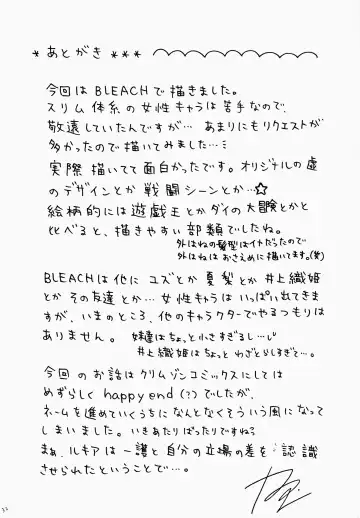 * あとがき ***
今回は BLEACHで描きました。
スリム体系の女性キャラは苦手なので、
敬遠していたんですが… あまりにもリクエストが
多かったので描いてみました…
実際描いてて面白かったです。オリジナルの虚
のデザインとか 戦闘シーンとか…☆
絵柄的には遊戯王とかダイの大冒険とかと
比べると、描きやすい部類でしたね。
外はねの髪型はイヤだったので
外はねはおさえめに描いてます。(笑)
BLEACHは他に ユズとか夏梨とか井上織姫
とかその友達とか… 女性キャラは いっぱい出てきま
すが、いまのところ、他のキャラクターでやるつもりは
ありません。 妹達はちょっと小さすぎるし…
井上織姫はちょっと わざとらしすぎて…。
今回 のお話はクリムゾンコミックスにしては
めずらしく happy end (?) でしたが、
ネームを進めていくうちになんとなくそういう風になって
しまいました。いきあたりばったりですね?
まぁ、ルキアは一護と自分の立場の差を 認識
させられたということで…。